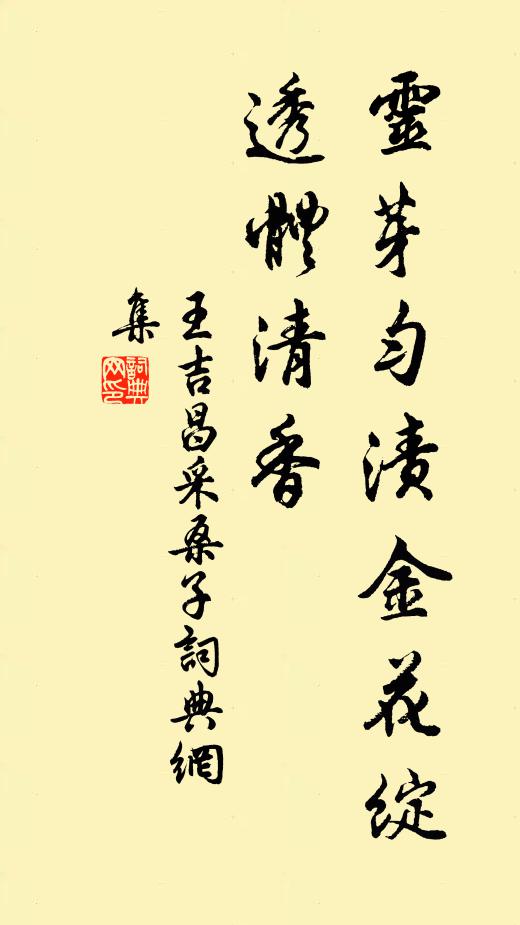 靈芽勻漬金花綻
透體清香
王吉昌采桑子詞典網
集
詞典
网印